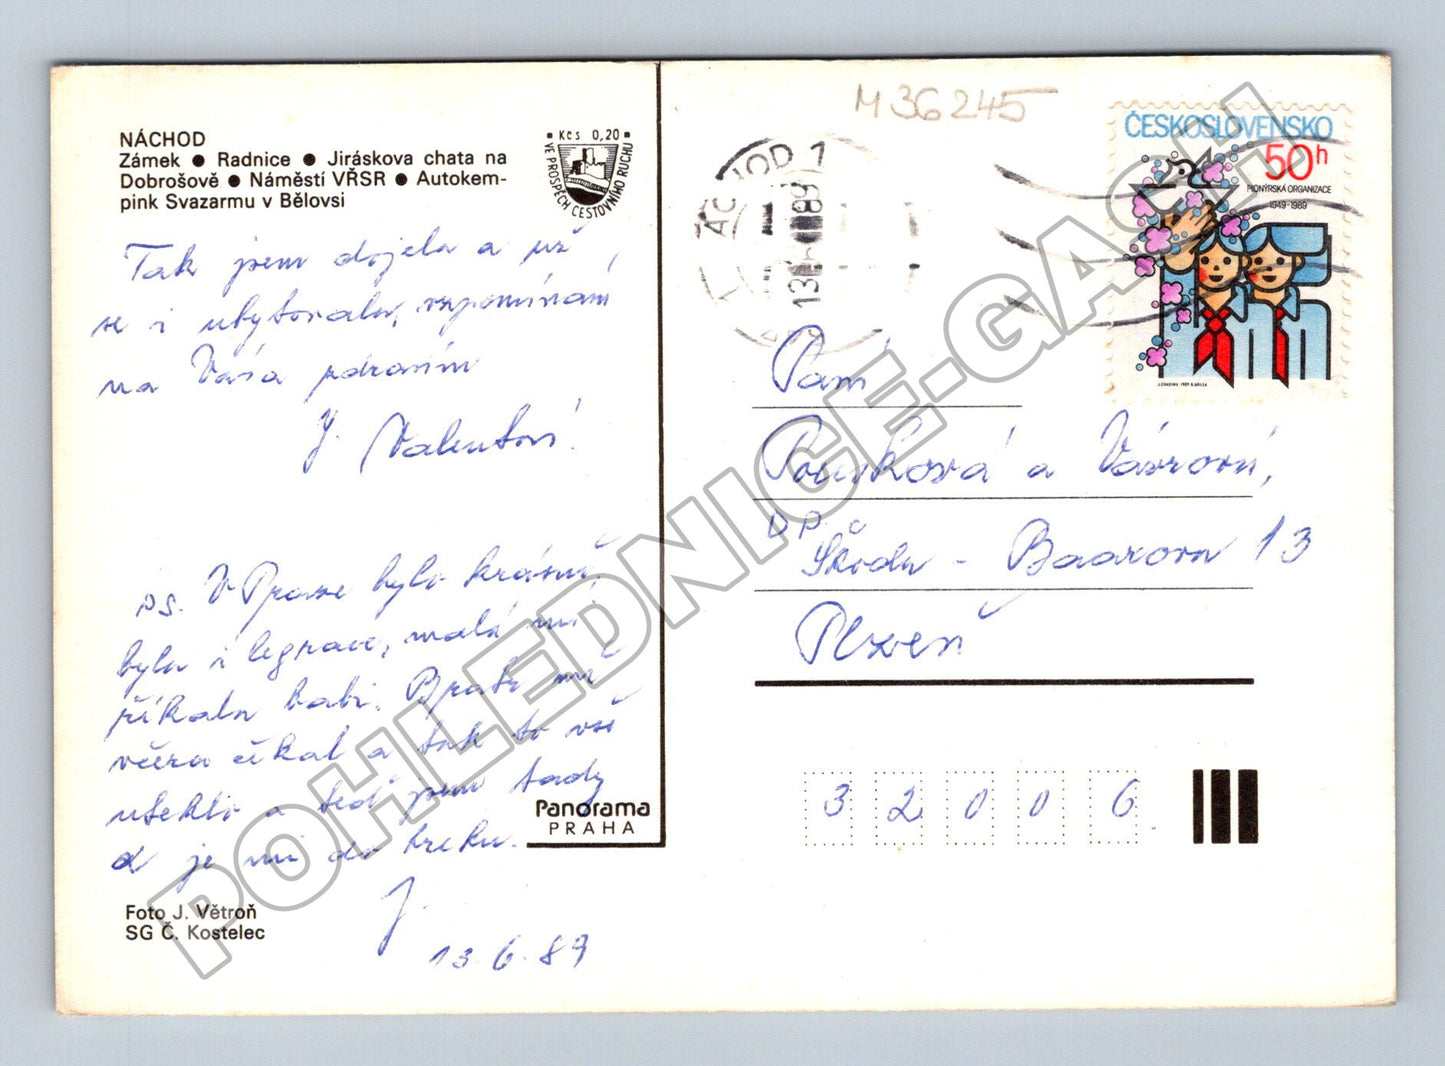 NÁCHOD
Zámek ● Radnice ● Jiráskova chata na
Dobrošově ● Náměstí VŘSR ● Autokem-
pink Svazarmu v Bělovsi
Kčs 0,20
VE PROSPĚCH CESTOVNÍHO RUCHU
Tak jsem dojela a už
se i ubytovala, vzpomínám
na Vás a zdravím
J. Valentová
P.S. V Praze bylo krásně,
byla i legrace, malá mi
říkala babi. Brácha mě
včera čekal a tak to vše
uteklo a teď jsem tady
a je mi do breku.
J.
13.6.89
Panorama
PRAHA
Foto J. Větroň
SG Č. Kostelec
M36245
NÁCHOD 1
ČESKOSLOVENSKO
50h
PIONÝRSKÁ ORGANIZACE
1949-1989
Paní
a Vávrová,
DP.
Škoda - Baarova 13
Plzeň
32006
POHLEDNICE-GACH